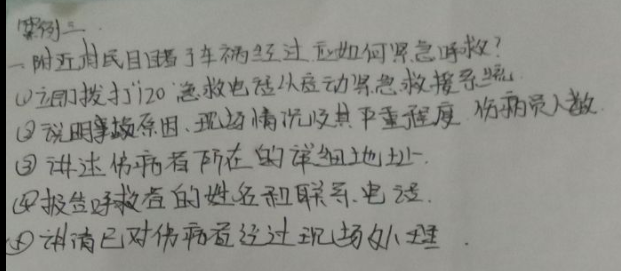 案例一
一附近村民目睹了车祸经过应如何紧急呼救?
①立即拨打120急救电话以启动紧急救援系统
②说明事故原因、现场情况及其严重程度 伤病员人数.
③讲述伤病者所在的详细地址.
④报告呼救者的姓名和联系电话.
⑤讲清已对伤病者经过现场处理.